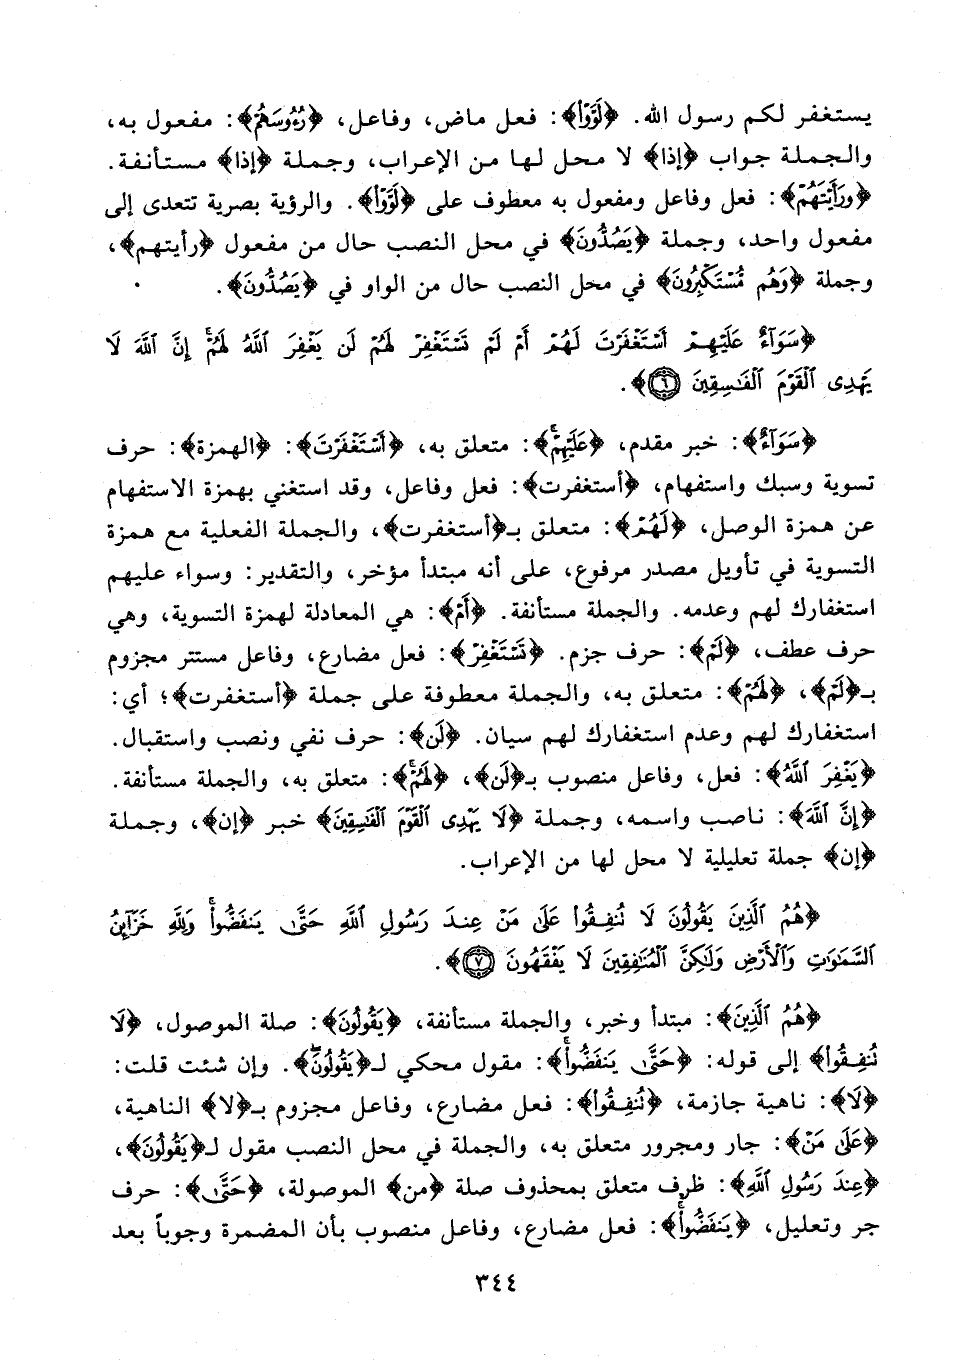 يستغفر لكم رسول الله. ﴿لَوَّوْا۟﴾: فعل ماض، وفاعل، ﴿رُءُوسَهُمْ﴾: مفعول به،
والجملة جواب ﴿إذا﴾ لا محل لها من الإعراب، وجملة ﴿إذا﴾ مستأنفة.
﴿وَرَأَيْتَهُمْ﴾: فعل وفاعل ومفعول به معطوف على ﴿لَوَّوْا۟﴾. والرؤية بصرية تتعدى إلى
مفعول واحد، وجملة ﴿يَصُدُّونَ﴾ في محل النصب حال من مفعول ﴿رأيتهم﴾،
وجملة ﴿وَهُم مُّسْتَكْبِرُونَ﴾ في محل النصب حال من الواو في ﴿يَصُدُّونَ﴾.
﴿سَوَآءٌ عَلَيْهِمْ أَسْتَغْفَرْتَ لَهُمْ أَمْ لَمْ تَسْتَغْفِرْ لَهُمْ لَن يَغْفِرَ ٱللَّهُ لَهُمْ ۚ إِنَّ ٱللَّهَ لَا
يَهْدِى ٱلْقَوْمَ ٱلْفَٰسِقِينَ ٦﴾.
﴿سَوَآءٌ﴾: خبر مقدم، ﴿عَلَيْهِمْ ۚ﴾: متعلق به، ﴿أَسْتَغْفَرْتَ﴾: ﴿الهمزة﴾: حرف
تسوية وسبك واستفهام، ﴿أستغفرت﴾: فعل وفاعل، وقد استغني بهمزة الاستفهام
عن همزة الوصل، ﴿لَهُمْ﴾: متعلق بـ﴿أستغفرت﴾، والجملة الفعلية مع همزة
التسوية في تأويل مصدر مرفوع، على أنه مبتدأ مؤخر، والتقدير: وسواء عليهم
استغفارك لهم وعدمه. والجملة مستأنفة. ﴿أَمْ﴾: هي المعادلة لهمزة التسوية، وهي
حرف عطف، ﴿لَمْ﴾: حرف جزم. ﴿تَسْتَغْفِرْ﴾: فعل مضارع، وفاعل مستتر مجزوم
بـ﴿لَمْ﴾، ﴿لَهُمْ﴾: متعلق به، والجملة معطوفة على جملة ﴿أستغفرت﴾؛ أي:
استغفارك لهم وعدم استغفارك لهم سيان. ﴿لَن﴾: حرف نفي ونصب واستقبال.
﴿يَغْفِرَ ٱللَّهُ﴾: فعل، وفاعل منصوب بـ﴿لَن﴾، ﴿لَهُمْ ۚ﴾: متعلق به، والجملة مستأنفة.
﴿إِنَّ ٱللَّهَ﴾: ناصب واسمه، وجملة ﴿لَا يَهْدِى ٱلْقَوْمَ ٱلْفَٰسِقِينَ﴾ خبر ﴿إن﴾، وجملة
﴿إن﴾ جملة تعليلية لا محل لها من الإعراب.
﴿هُمُ ٱلَّذِينَ يَقُولُونَ لَا تُنفِقُوا۟ عَلَىٰ مَنْ عِندَ رَسُولِ ٱللَّهِ حَتَّىٰ يَنفَضُّوا۟ ۗ وَلِلَّهِ خَزَآئِنُ
ٱلسَّمَٰوَٰتِ وَٱلْأَرْضِ وَلَٰكِنَّ ٱلْمُنَٰفِقِينَ لَا يَفْقَهُونَ ٧﴾.
﴿هُمُ ٱلَّذِينَ﴾: مبتدأ وخبر، والجملة مستأنفة، ﴿يَقُولُونَ﴾: صلة الموصول، ﴿لَا
تُنفِقُوا۟﴾ إلى قوله: ﴿حَتَّىٰ يَنفَضُّوا۟ ۗ﴾: مقول محكي لـ﴿يَقُولُونَ﴾. وإن شئت قلت:
﴿لَا﴾: ناهية جازمة، ﴿تُنفِقُوا۟﴾: فعل مضارع، وفاعل مجزوم بـ﴿لا﴾ الناهية،
﴿عَلَىٰ مَنْ﴾: جار ومجرور متعلق به، والجملة في محل النصب مقول لـ﴿يَقُولُونَ﴾،
﴿عِندَ رَسُولِ ٱللَّهِ﴾: ظرف متعلق بمحذوف صلة ﴿من﴾ الموصولة، ﴿حَتَّىٰ﴾: حرف
جر وتعليل، ﴿يَنفَضُّوا۟ ۗ﴾: فعل مضارع، وفاعل منصوب بأن المضمرة وجوباً بعد
٣٤٤